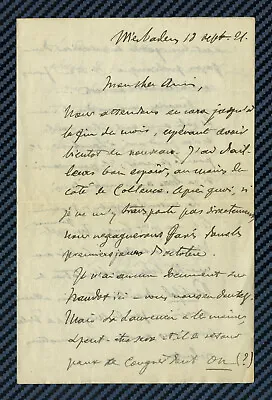 Wiesbaden 18 sept. 21.
Mon cher Ami,
Nous attendons encore jusqu'à
la fin du mois, espérant avoir
bientôt du nouveau. J'ai d'ail-
leurs bon espoir, au moins du
côté de Coblence. Après quoi, si
je ne m'y transporte pas directement,
nous regagnerons Paris dans les
premiers jours d'octobre.
Je n'ai aucun document sur
ici – vous vous en doutez.
Mais de a-t-il le même,
peut-être
de Congrès dont On (?)